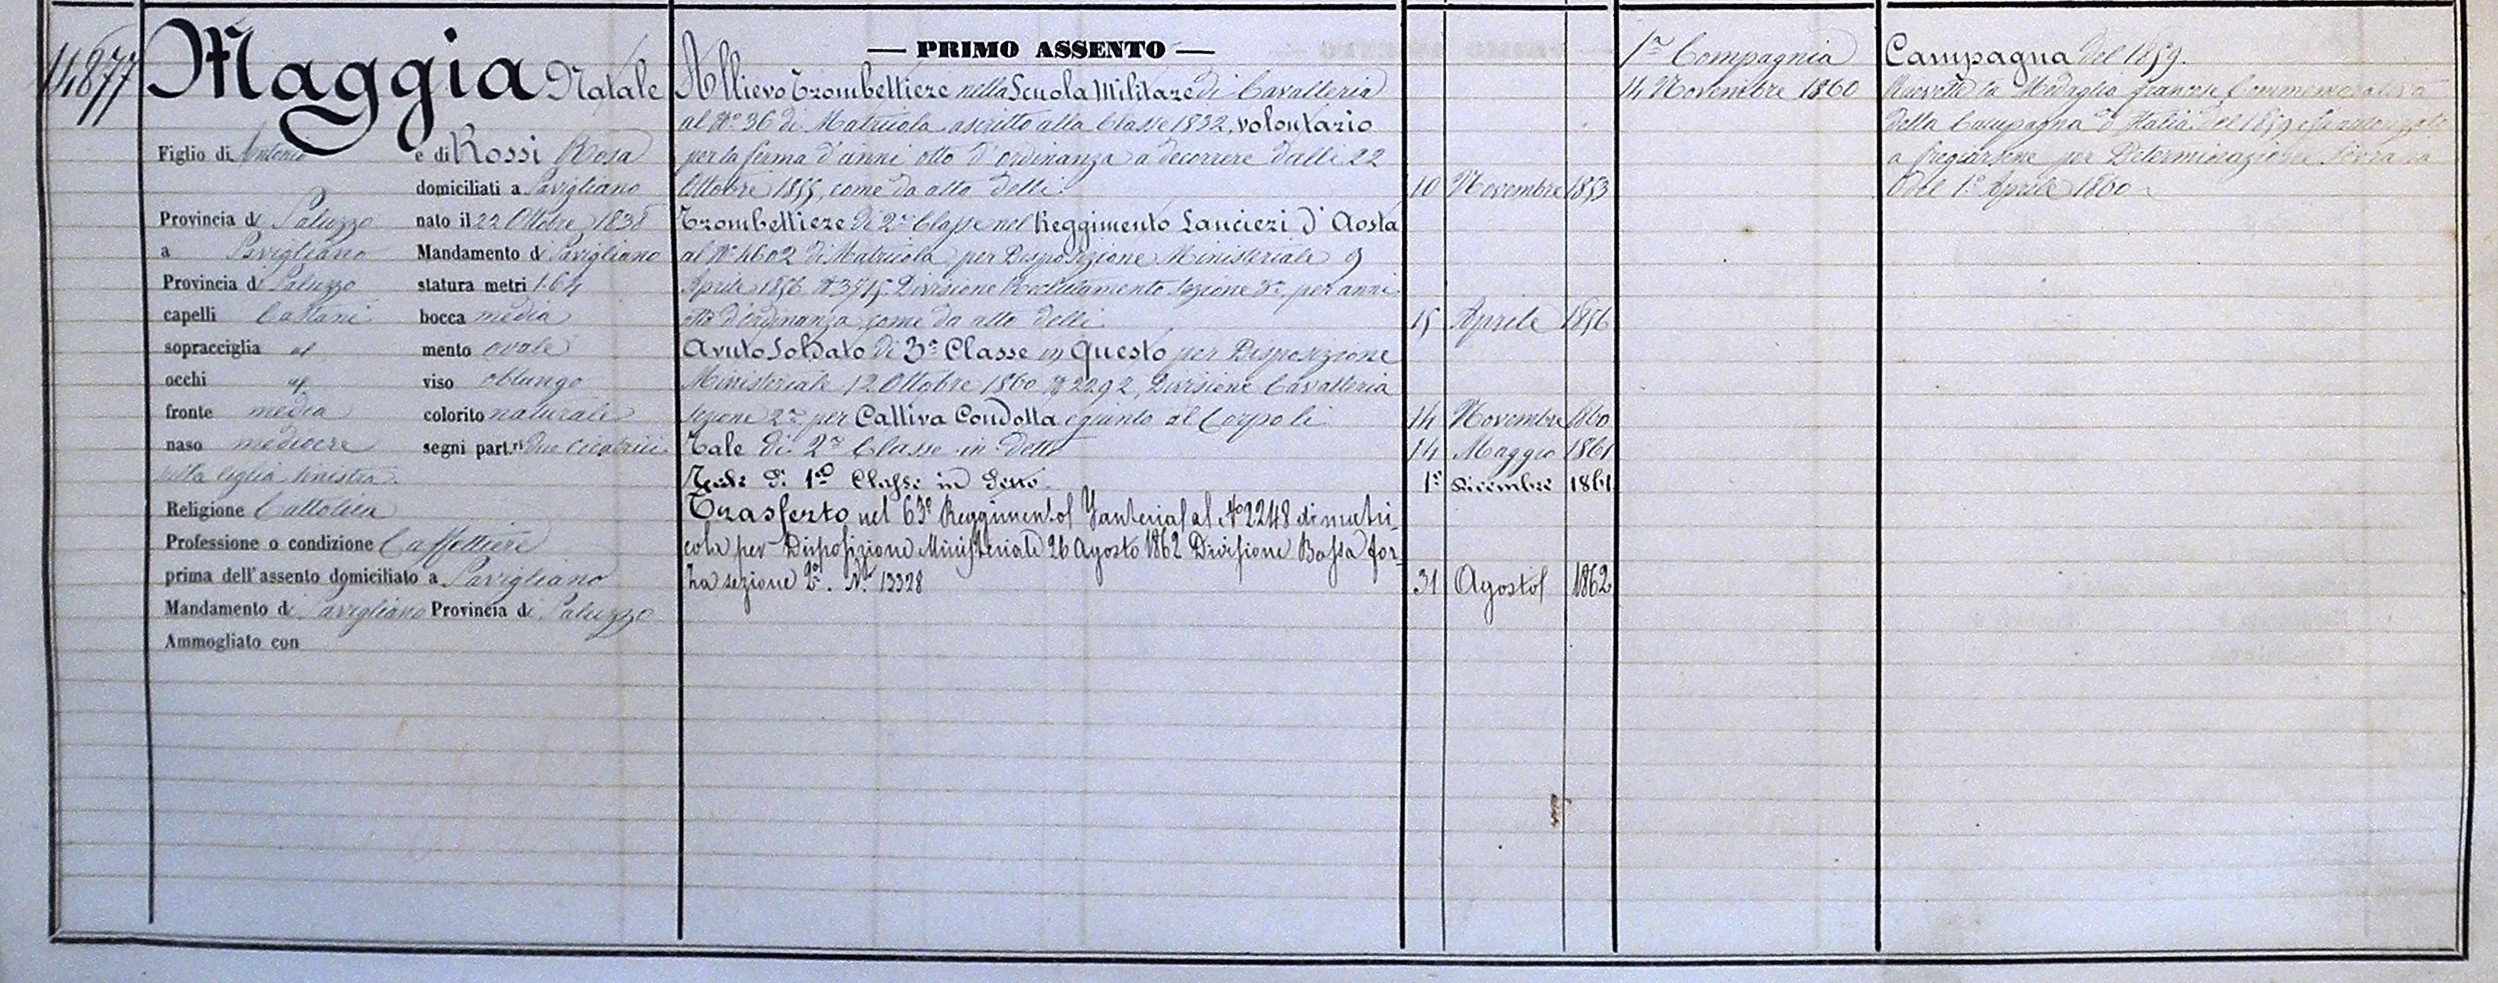 14877
Maggia Natale
Figlio di Antonio e di Rossi Rosa
domiciliati a Savigliano
Provincia di Saluzzo nato il 22 Ottobre 1838
a Savigliano Mandamento di Savigliano
Provincia di Saluzzo statura metri 1.64
capelli Castani bocca media
sopracciglia id mento ovale
occhi id viso oblungo
fronte media colorito naturale
naso mediocre segni part.ri Due cicatrici
alla ciglia sinistra
Religione Cattolica
Professione o condizione Caffettiere
prima dell'assento domiciliato a Savigliano
Mandamento di Savigliano Provincia di Saluzzo
Ammogliato con
— PRIMO ASSENTO —
Allievo Trombettiere nella Scuola Militare di Cavalleria
al No. 36 di Matricola ascritto alla Classe 1832, volontario
per la ferma d'anni otto d'ordinanza a decorrere dalli 22
Ottobre 1855, come da atto delli 10 Novembre 1853
Trombettiere di 2a Classe nel Reggimento Lancieri d'Aosta
al No. 4602 di Matricola per Disposizione Ministeriale 9
Aprile 1856 No. 3715 Divisione Reclutamento Sezione 3a per anni
otto d'ordinanza come da atto delli 15 Aprile 1856
Avuto Soldato di 3a Classe in Questo per Disposizione
Ministeriale 12 Ottobre 1860 No. 2292, Divisione Cavalleria
Sezione 2a per Cattiva Condotta e giunto al Corpo li 14 Novembre 1860
Tale di 2a Classe in detto 14 Maggio 1861
Tale di 1a Classe in detto. 1o Dicembre 1861
Trasferto nel 63o Reggimento Fanteria al No 2248 di matri-
cola per Disposizione Ministeriale 26 Agosto 1862 Divisione Bassa for-
za sezione 2a. No. 13328 31 Agosto 1862
1a Compagnia
14 Novembre 1860
Campagna del 1859.
Ricevette la Medaglia francese Commemorativa
della Campagna d'Italia del 1859 ed autorizzato
a fregiarsene per Determinazione Sovrana
del 1o Aprile 1860